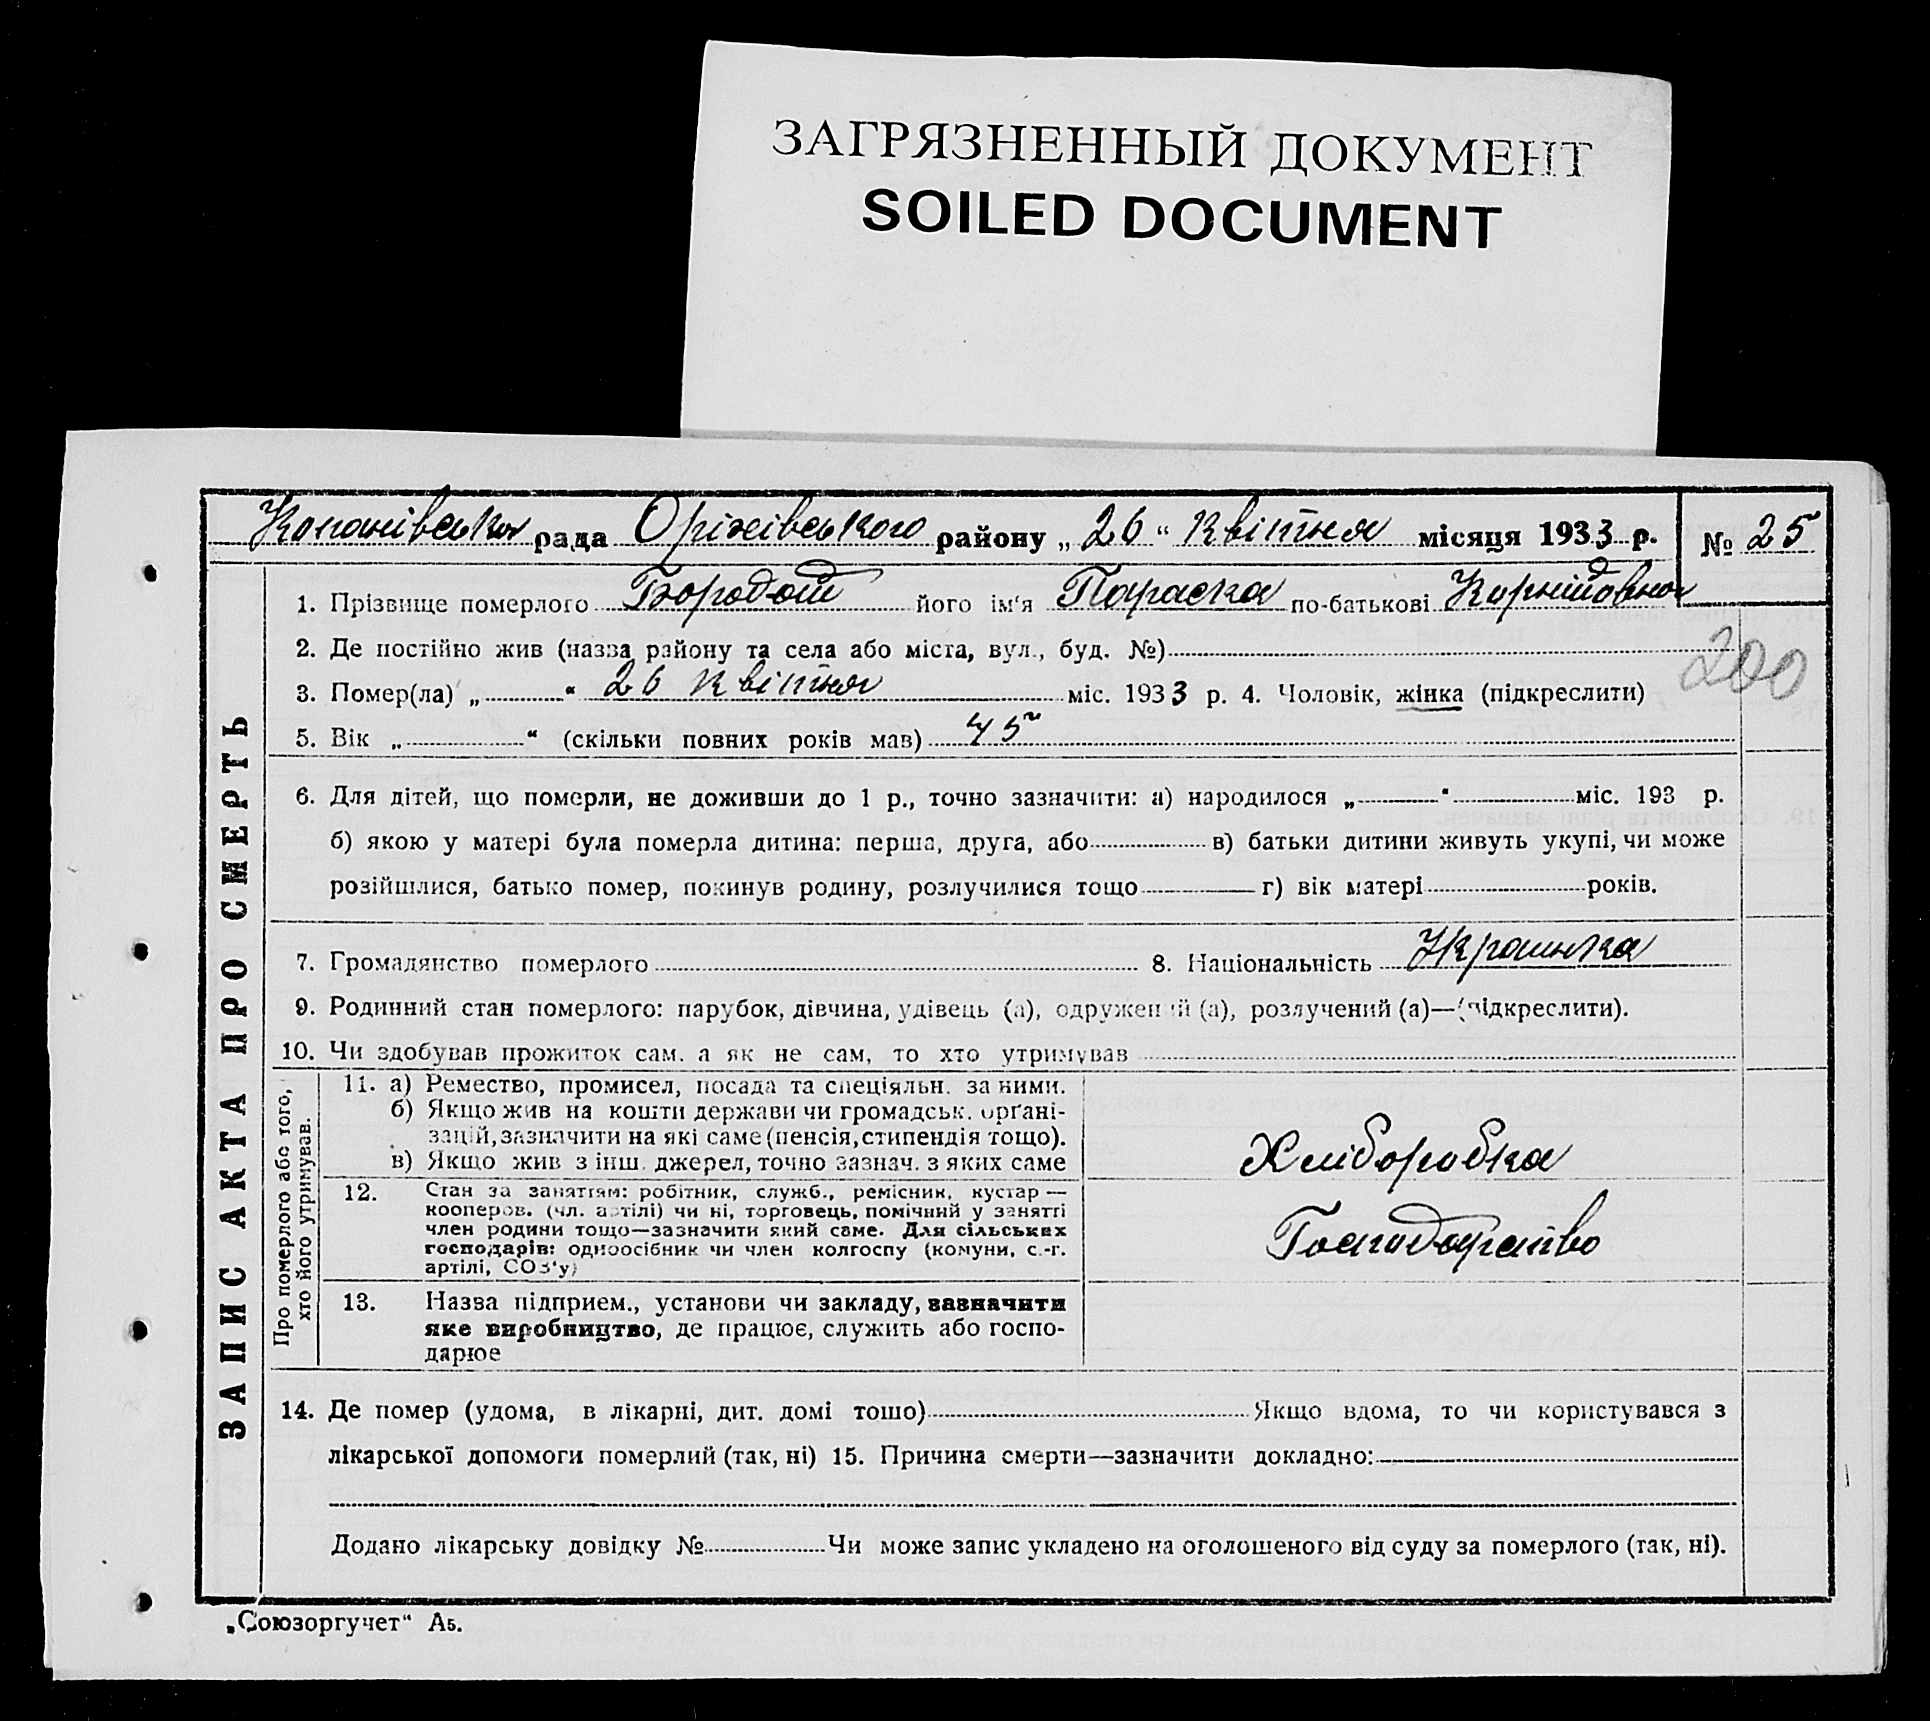 ЗАГРЯЗНЕННЫЙ ДОКУМЕНТ
SOILED DOCUMENT
Копанівська рада Оріхівського району „ 26 “ Квітня місяця 1933 р. № 25
1. Прізвище померлого Бородай його ім‘я Параска по-батькові Корніївна
200
2. Де постійно жив (назва району та села або міста, вул., буд. №)
3. Помер(ла) „ “ 26 Квітня міс. 1933 р. 4. Чоловік, жінка (підкреслити)
5. Вік „ “ (скільки повних років мав) 45
6. Для дітей, що померли, не доживши до 1 р., точно зазначити: а) народилося „ “ міс. 193 р.
б) якою у матері була померла дитина: перша, друга, або в) батьки дитини живуть укупі, чи може
розійшлися, батько помер, покинув родину, розлучилися тощо г) вік матері років.
7. Громадянство померлого 8. Національність Украинка
9. Родинний стан померлого: парубок, дівчина, удівець (а), одружений (а), розлучений (а)—(підкреслити).
10. Чи здобував прожиток сам. а як не сам, то хто утримував
ЗАПИС АКТА ПРО СМЕРТЬ
Про померлого або того,
хто його утримував.
11. а) Ремество, промисел, посада та спеціяльн. за ними.
б) Якщо жив на кошти держави чи громадськ. орґані-
зацій, зазначити на які саме (пенсія, стипендія тощо).
в) Якщо жив з інш. джерел, точно зазнач. з яких саме
Хліборобка
12. Стан за заняттям: робітник, служб., ремісник, кустар —
кооперов. (чл. артілі) чи ні, торговець, помічний у занятті
член родини тощо—зазначити який саме. Для сільських
господарів: одноосібник чи член колгоспу (комуни, с.-г.
артілі, СОЗ‘у)
Господарство
13. Назва підприєм., установи чи закладу, зазначити
яке виробництво, де працює, служить або госпо-
дарює
14. Де помер (удома, в лікарні, дит. домі тощо) Якщо вдома, то чи користувався з
лікарської допомоги померлий (так, ні) 15. Причина смерти—зазначити докладно:
Додано лікарську довідку № Чи може запис укладено на оголошеного від суду за померлого (так, ні).
„Союзоргучет“ А5.